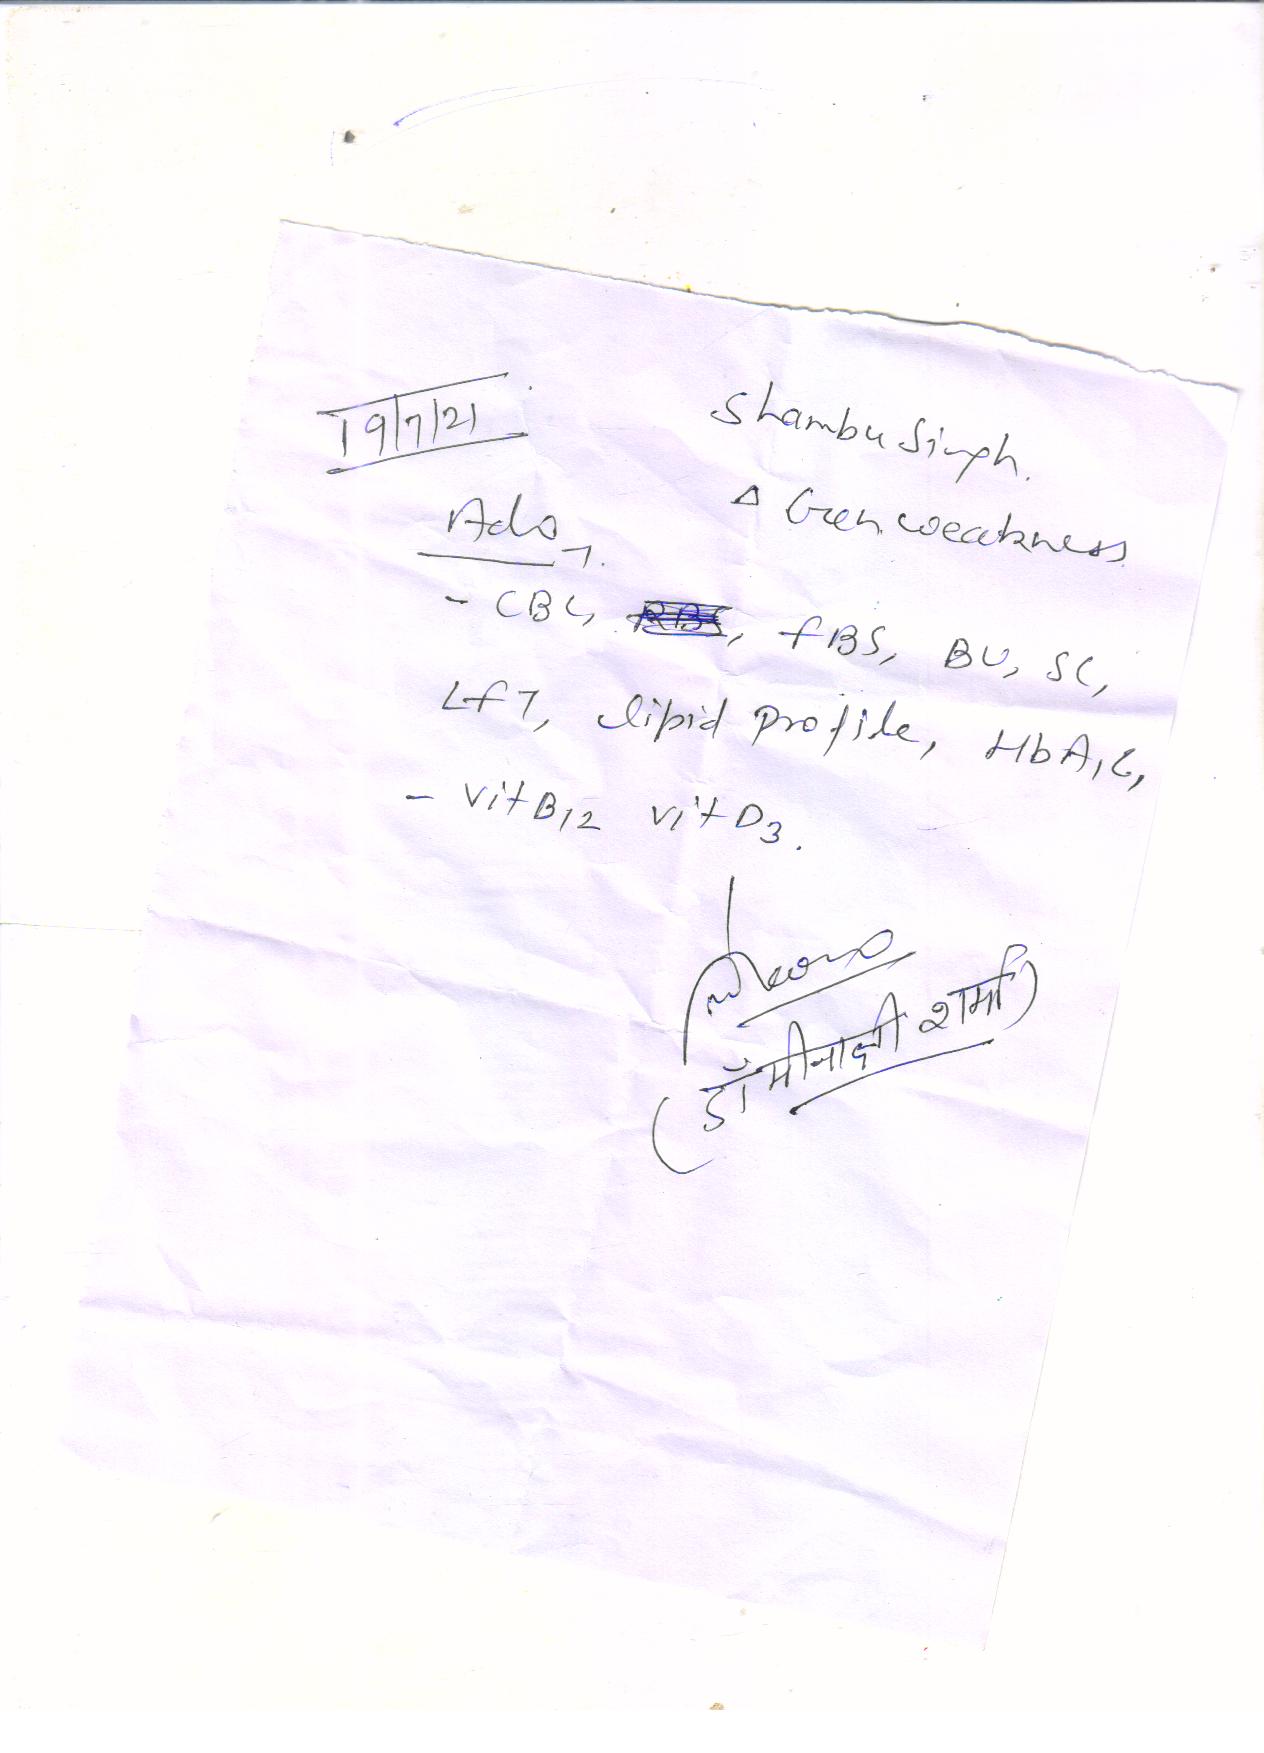 19/7/21
Shambu Singh.
Δ Gen. weakness
Adv
- CBC, RBS, FBS, BU, SC,
LFT, lipid profile, HbA1C,
- Vit B12 Vit D3.
(डॉ मीनाक्षी शर्मा)